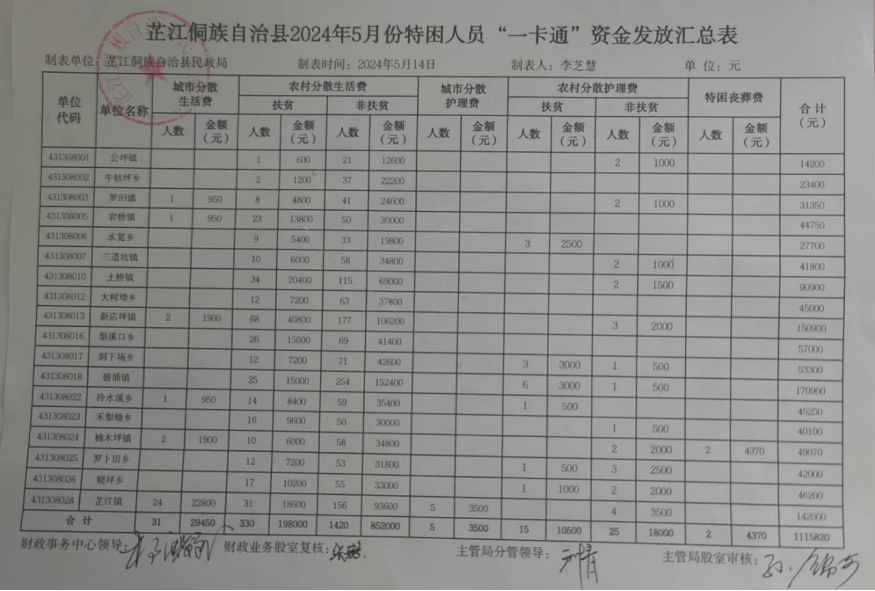 芷江侗族自治县2024年5月份特困人员“一卡通”资金发放汇总表
制表单位：芷江侗族自治县民政局 制表时间：2024年5月14日 制表人：李芝慧 单 位：元
单位代码 单位名称 城市分散生活费 农村分散生活费 城市分散护理费 农村分散护理费 特困丧葬费 合 计（元）
扶贫 非扶贫 扶贫 非扶贫
人数 金额（元） 人数 金额（元） 人数 金额（元） 人数 金额（元） 人数 金额（元） 人数 金额（元） 人数 金额（元）
431308001 公坪镇 1 600 21 12600 2 1000 14200
431308002 牛牯坪乡 2 1200 37 22200 23400
431308003 罗旧镇 1 950 8 4800 41 24600 2 1000 31350
431308005 岩桥镇 1 950 23 13800 50 30000 44750
431308006 水宽乡 9 5400 33 19800 3 2500 27700
431308007 三道坑镇 10 6000 58 34800 2 1000 41800
431308010 土桥镇 34 20400 115 69000 2 1500 90900
431308012 大树坳乡 12 7200 63 37800 45000
431308013 新店坪镇 2 1900 68 40800 177 106200 3 2000 150900
431308016 梨溪口乡 26 15600 69 41400 57000
431308017 洞下场乡 12 7200 71 42600 3 3000 1 500 53300
431308018 碧涌镇 25 15000 254 152400 6 3000 1 500 170900
431308022 冷水溪乡 1 950 14 8400 59 35400 1 500 45250
431308023 禾梨坳乡 16 9600 50 30000 1 500 40100
431308024 楠木坪镇 2 1900 10 6000 58 34800 2 2000 2 4370 49070
431308025 罗卜田乡 12 7200 53 31800 1 500 3 2500 42000
431308026 晓坪乡 17 10200 55 33000 1 1000 2 2000 46200
431308028 芷江镇 24 22800 31 18600 156 93600 5 3500 4 3500 142000
合 计 31 29450 330 198000 1420 852000 5 3500 15 10500 25 18000 2 4370 1115820
财政事务中心领导： 财政业务股室复核： 主管局分管领导： 主管局股室审核：